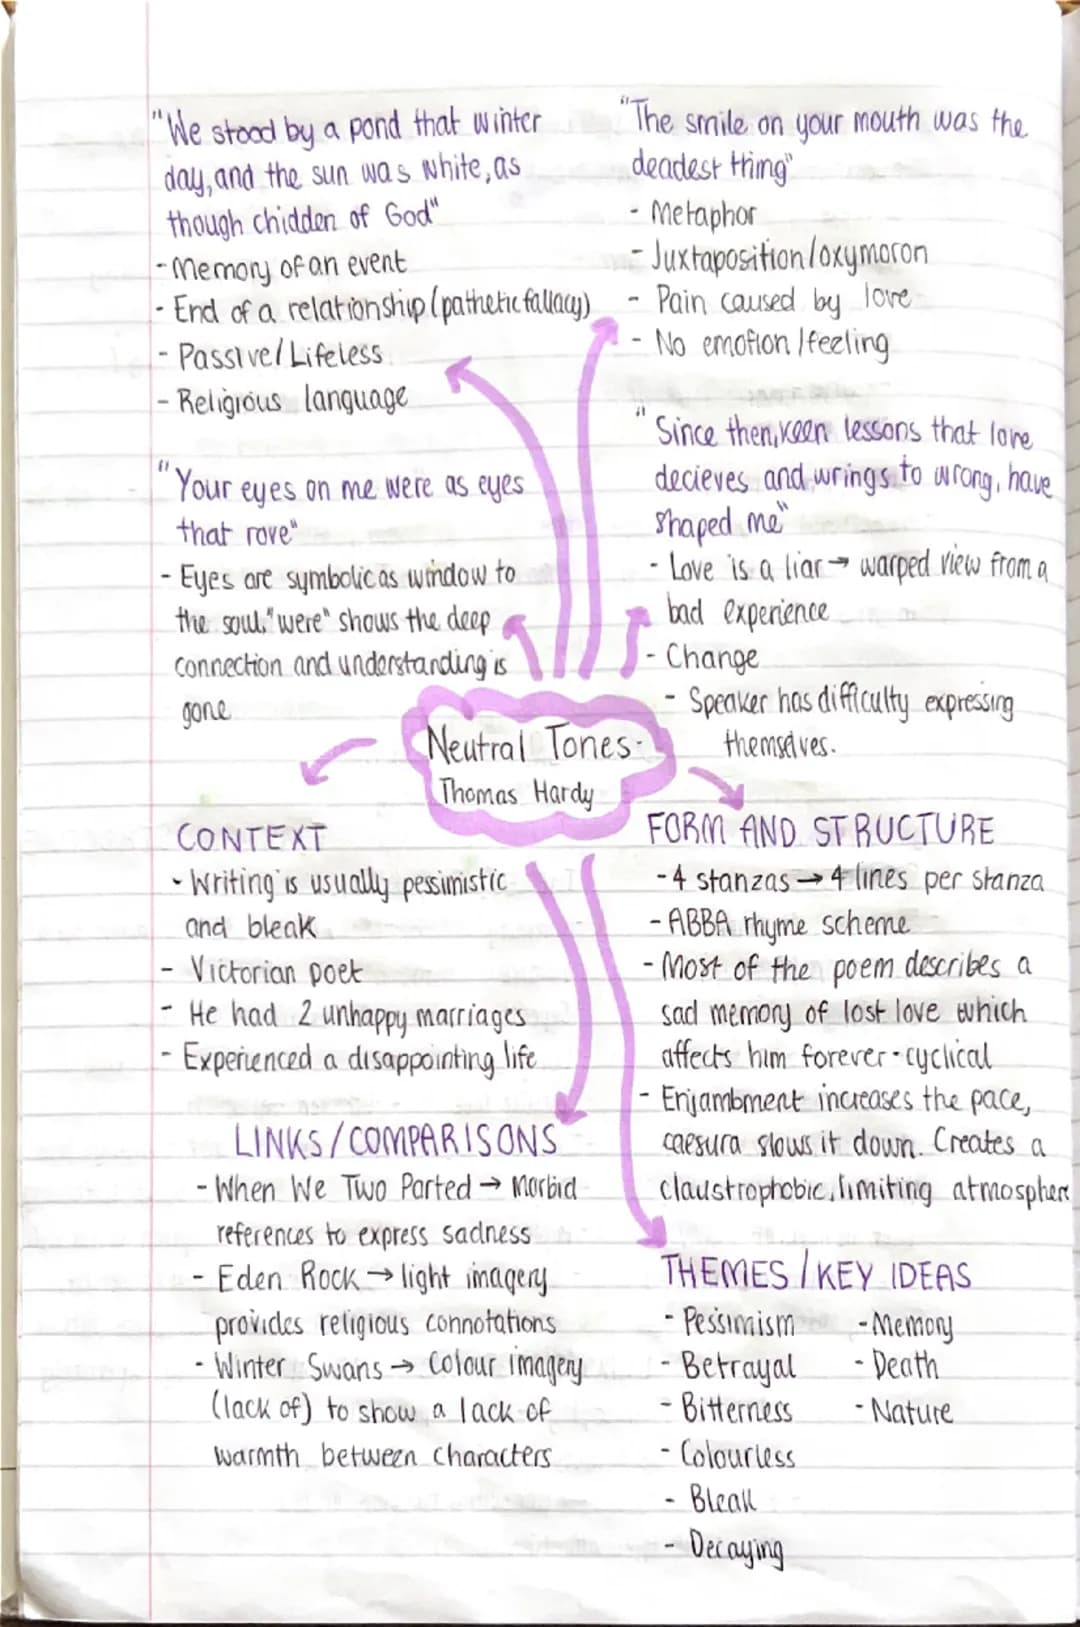 "We stood by a pond that winter
day, and the sun was white, as
though chidden of God"
- Memory of an event
- End of a relationship (pathetic fallacy)
- Passive/Lifeless
- Religious language
"The smile on your mouth was the
deadest thing"
- Metaphor
- Juxtaposition/oxymoron
- Pain caused by love
- No emotion/feeling
"Your eyes on me were as eyes
that rove"
- Eyes are symbolic as window to
the soul. "were" shows the deep
connection and understanding is
gone
"Since then, keen lessons that love
decieves and wrings to wrong, have
shaped me"
- Love is a liar → warped view from a
bad experience
- Change
- Speaker has difficulty expressing
themselves.
Neutral Tones-
Thomas Hardy
CONTEXT
- Writing is usually pessimistic
and bleak
- Victorian poet
- He had 2 unhappy marriages
- Experienced a disappointing life
FORM AND STRUCTURE
- 4 stanzas → 4 lines per stanza
- ABBA rhyme scheme
- Most of the poem describes a
sad memory of lost love which
affects him forever - cyclical
- Enjambment increases the pace,
caesura slows it down. Creates a
claustrophobic, limiting atmosphere
LINKS/COMPARISONS
- When We Two Parted → Morbid
references to express sadness
- Eden Rock → light imagery
provides religious connotations
- Winter Swans → Colour imagery
(lack of) to show a lack of
warmth between characters
THEMES/KEY IDEAS
- Pessimism
- Betrayal
- Bitterness
- Colourless
- Bleak
- Decaying
- Memory
- Death
- Nature